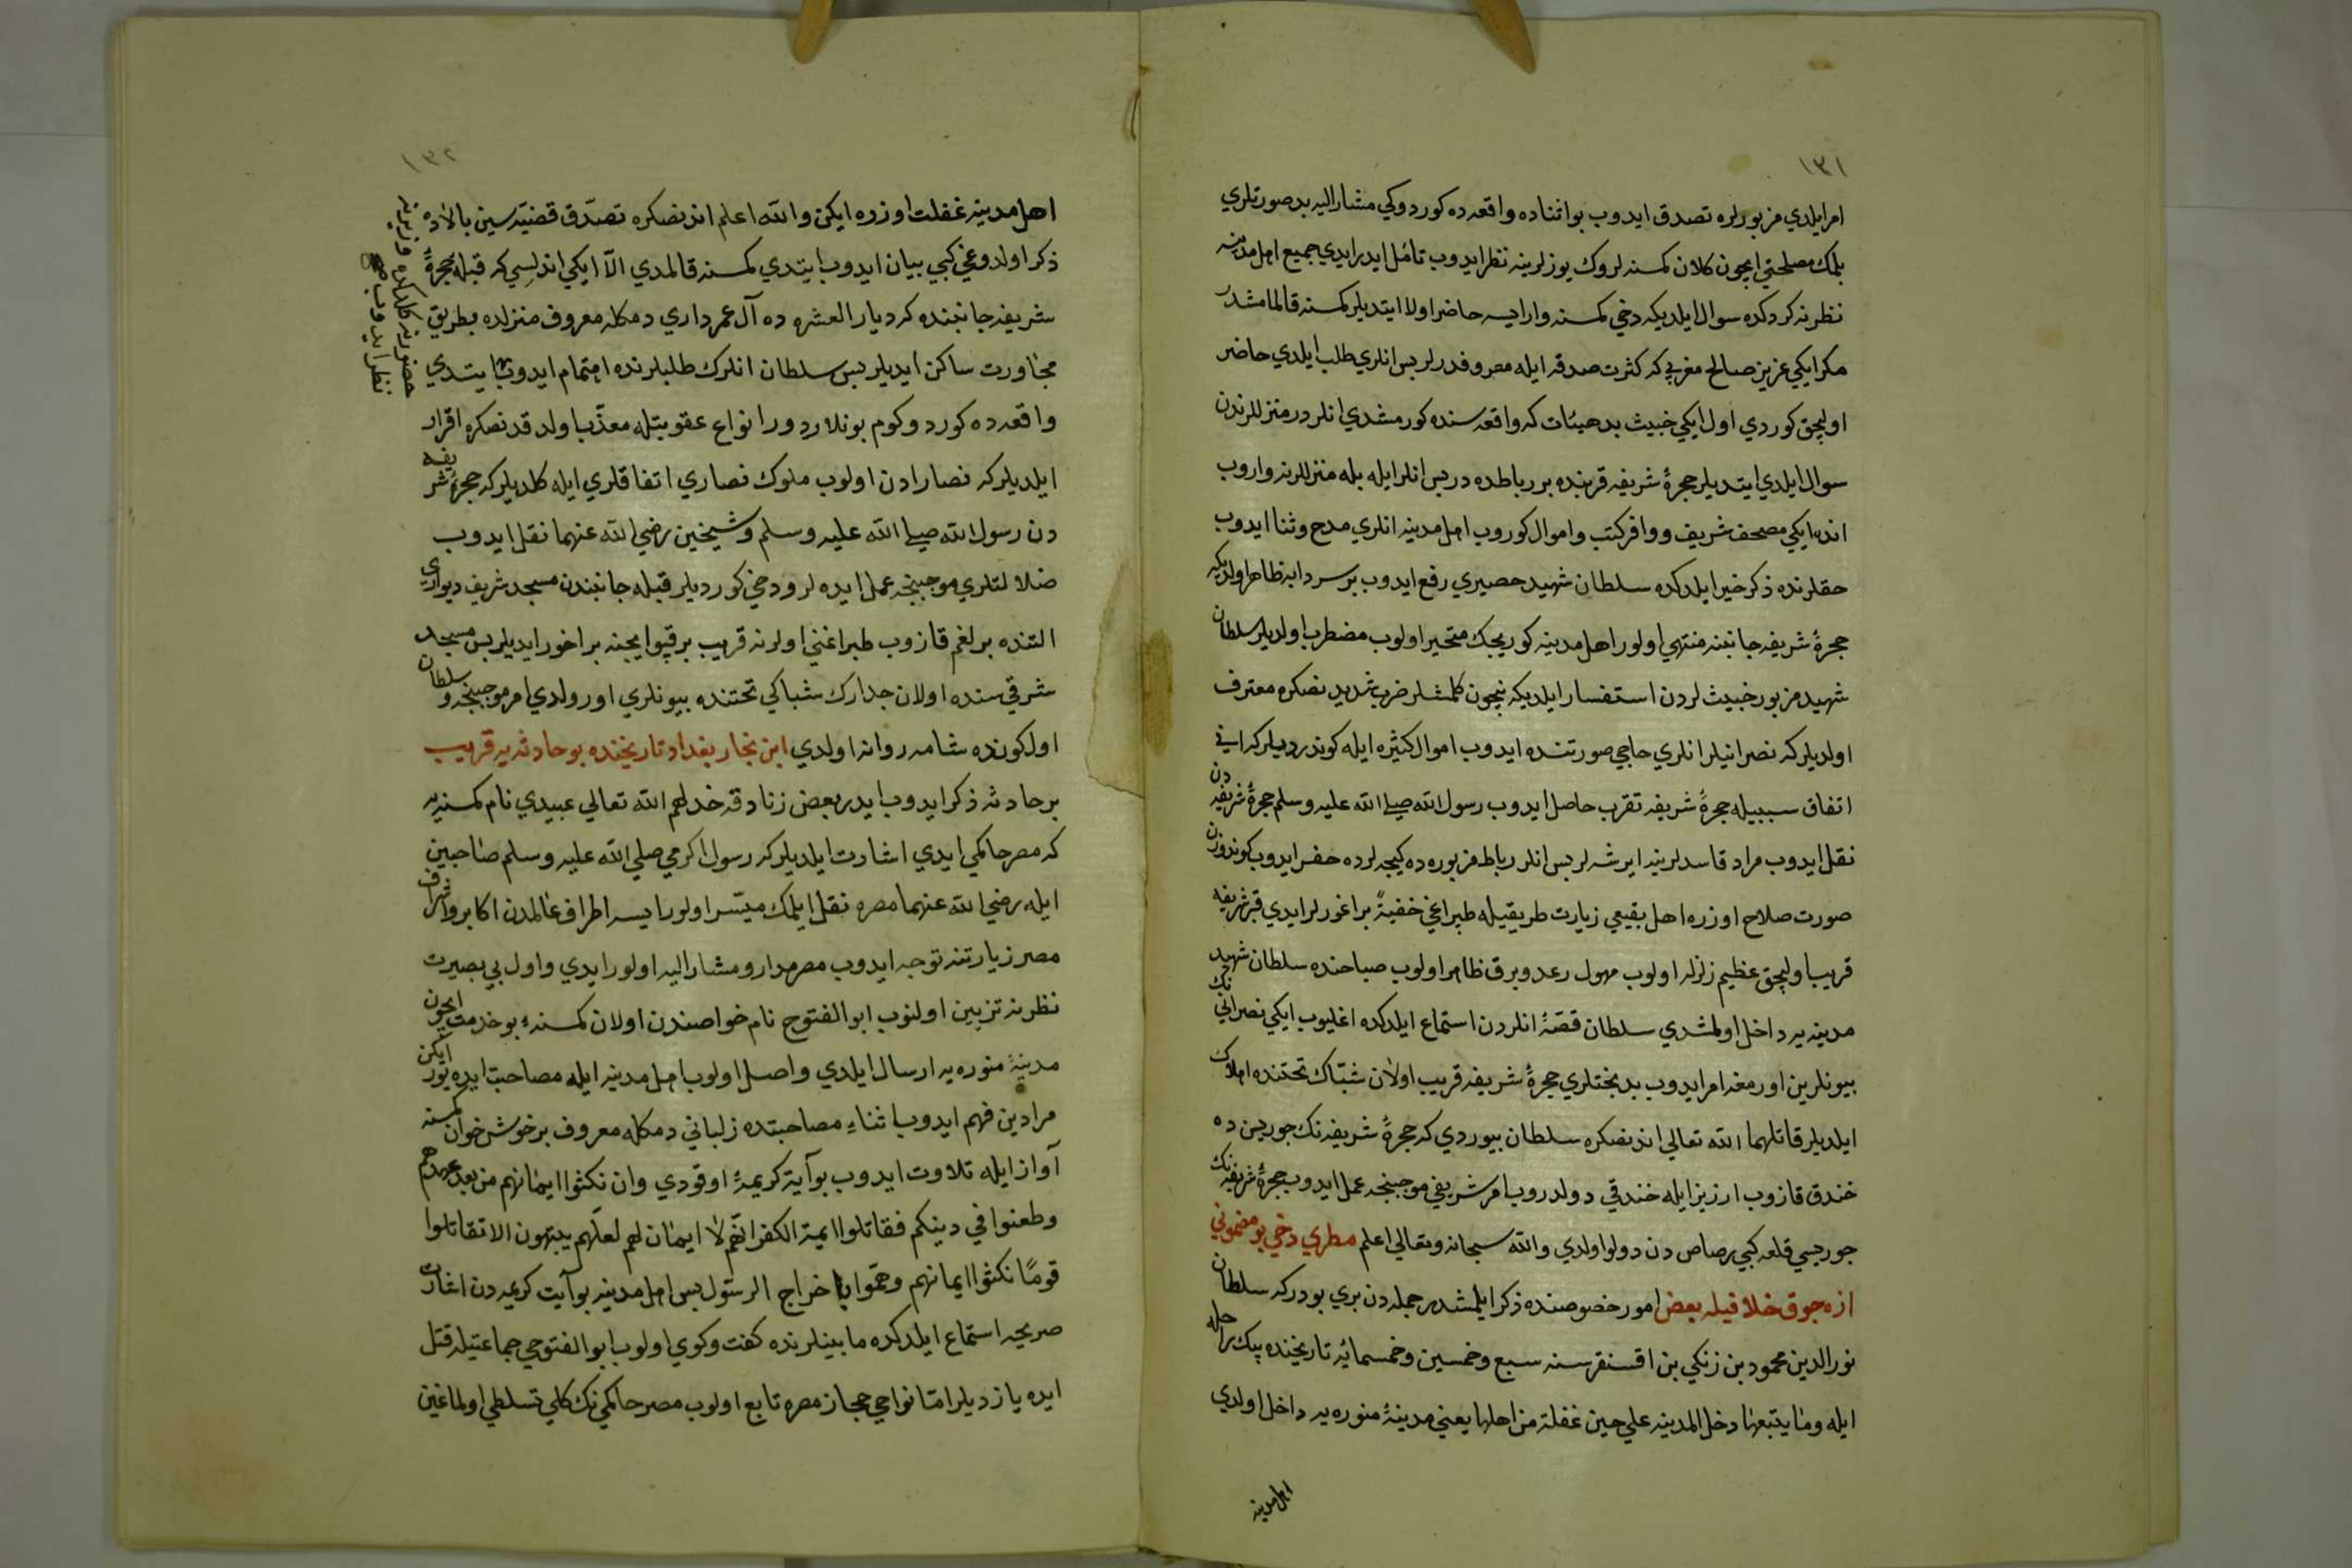 ١٣١
امر ايلدي مزبورلره تصدق ايدوب بو اثناده واقعه ده كوردوكي مشار اليه بد صورتلري
بلمك مصلحتي ايچون كلان كمسنه لروك يوزلرينه نظر ايدوب تأمل ايدر ايدي جميع اهل مدينه
نظرنه كردكده سوال ايلديكه دخي كمسنه وار ايسه حاضر اولا ايتديلر كمسنه قالمامشدر
مكر ايكي عزيز صالح مغربي كه كثرت صدقه ايله معروفدرلر بس انلري طلب ايلدي حاضر
اوليجق كوردي اول ايكي خبيث بد هيئات كه واقعه سنده كورمشدي انلردر منزللرندن
سوال ايلدي ايتديلر حجرۀ شريفه قربنده بر رباطده در بس انلر ايله بله منزللرينه واروب
انده ايكي مصحف شريف و وافر كتب و اموال كوروب اهل مدينه انلري مدح و ثنا ايدوب
حقلرنده ذكر خير ايلدكده سلطان شهيد حصيري رفع ايدوب بر سردابه ظاهر اولديكه
حجرۀ شريفه جانبنه منتهي اولور اهل مدينه كوريجك متحير اولوب مضطرب اولديلر سلطان
شهيد مزبور خبيث لردن استفسار ايلديكه نيچون كلمشلر ضرب شديدنصكره معترف
اولديلر كه نصرانيلر انلري حاجي صورتنده ايدوب اموال كثيره ايله كوندرديلر كه
اتفاق سببيله حجرۀ شريفه تقرب حاصل ايدوب رسول الله صلي الله عليه وسلم حجرۀ شريفه دن
نقل ايدوب مراد فاسدلرينه ايرشه لر بس انلر رباط مزبوره ده كيجه لرده حفر ايدوب كوندوزن
صورت صلاح اوزره اهل بقيعي زيارت طريقيله طپراغي خفيةً براغورلر ايدي قبر شريفه
قريب اوليجق عظيم زلزله اولوب مهول رعد و برق ظاهر اولوب صباحنده سلطان شهيد
مدينه يه داخل اولمشدي سلطان قصّۀ انلردن استماع ايلدكده اغليوب ايكي نصراني نك
بيونلرين اورمغه امر ايدوب بدبختلري حجرۀ شريفه قريب اولان شبّاك تحتنده اهلاك
ايلديلر قاتلهما الله تعالي اندنصكره سلطان بيوردي كه حجرۀ شريفه نك جوريسن ده
خندق قازوب ارزيز ايله خندقي دولدروب امر شريفي موجبنجه عمل ايدوب حجرۀ شريفه نك
جوريسي قلعه كبي رصاص دن دولو اولدي والله سبحانه وتعالي اعلم مطري دخي بو مضموني
ازه جوق خلافيله بعض امور خصوصنده ذكر ايلمشدر جمله دن بري بودر كه سلطان
نور الدين محمود بن زنكي بن اقسنقر سنه سبع وخمسين وخمسمائه تاريخنده بيك راحله
ايله وما يتبعها دخل المدينه علي حين غفلة من اهلها يعني مدينۀ منوره يه داخل اولدي
اهل مدينه
١٣٢
اهل مدينه غفلت اوزره ايكن والله اعلم اندنصكره تصدّق قضيّه سين بالاده
ذكر اولدوغي كبي بيان ايدوب ايتدي كمسنه قالمدي الّا ايكي اندلسي كه قبله حجرۀ
شريفه جانبنده كه ديار العشره ده آل عمر داري دمكله معروف منزلده بطريق
مجاورت ساكن ايديلر بس سلطان انلرك طلبلرنده اهتمام ايدوب ايتدي
حضورنه كلدكلرنده وزيرينه
نظر ايدوب
واقعه ده كوردوكوم بونلاردور انواع عقوبتله معذّب اولدقدنصكره اقرار
ايلديلر كه نصارادن اولوب ملوك نصاري اتفاقلري ايله كلديلر كه حجرۀ شريفه
دن رسول الله صلي الله عليه وسلم وشيخين رضي الله عنهما نقل ايدوب
ضلالتلري موجبنجه عمل ايده لر و دخي كورديلر قبله جانبندن مسجد شريف ديواري
التنده بر لغم قازوب طپراغني اولرنه قريب بر قپو ايچنه براغور ايديلر بس مسجد
شرقي سنده اولان جدارك شباكي تحتنده بيونلري اورولدي امر موجبنجه و سلطان
اول كونده شامه روانه اولدي ابن نجار بغداد تاريخنده بو حادثه يه قريب
بر حادثه ذكر ايدوب ايدر بعض زنادقه خذلهم الله تعالي عبيدي نام كمسنه يه
كه مصر حاكمي ايدي اشارت ايلديلر كه رسول اكرمي صلي الله عليه وسلم صاحبين
ايله رضي الله عنهما مصره نقل ايلمك ميسّر اولور ايسه اطراف عالمدن اكابر و اشراف
مصر زيارتنه توجه ايدوب مصر مدار و مشار اليه اولور ايدي و اول بي بصيرت
نظرنه تزيين اولنوب ابو الفتوح نام خواصندن اولان كمسنه ء بو خدمت ايچون
مدينۀ منوره يه ارسال ايلدي واصل اولوب اهل مدينه ايله مصاحبت ايده يور ايكن
مرادين فهم ايدوب اثناء مصاحبتده زلباني دمكله معروف بر خوش خوان كمسنه
آواز ايله تلاوت ايدوب بو آية كريمۀ اوقودي وان نكثوا ايمانهم من بعد عهدهم
وطعنوا في دينكم فقاتلوا ايمة الكفر انّهم لا ايمان لهم لعلّهم ينتهون الا تقاتلوا
قومًا نكثوا ايمانهم وهمّوا باخراج الرسول بس اهل مدينه بو آيت كريمه دن اشارت
صريحه استماع ايلدكده مابينلرنده كفت وكوي اولوب ابو الفتوحي جماعتيله قتل
ايده يازديلر امّا نواحي حجاز مصره تابع اولوب مصر حاكمي نك كلي تسلطي اولماغين